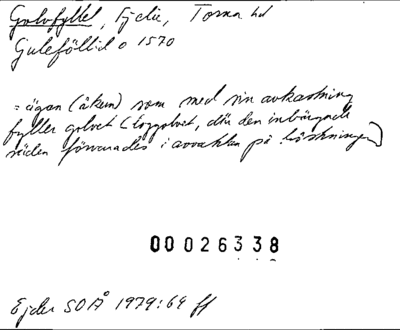 Golvfyllel, Fjelie, Torna hd
Gulefölled o 1570
= ägan (åkern) som med sin avkastning
fyller golvet (loggolvet, där den inbärgade
säden förvarades i avvaktan på tröskningen)
00026338
Ejder SOÅ 1979:64 ff